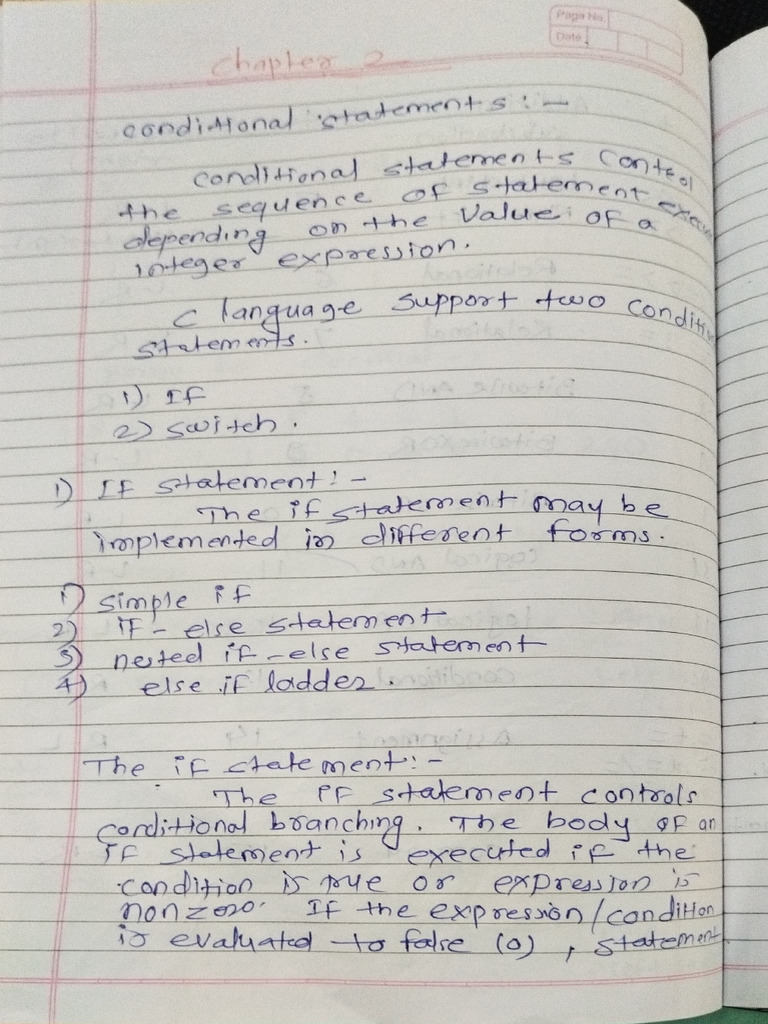 Page No.
Date
Chapter 2
conditional statements : -
conditional statements control
the sequence of statement execu
depending on the value of a
integer expression.
C language support two conditi
statements.
1) If
2) switch .
1) If statement : -
The if statement may be
implemented in different forms.
1) simple if
2) if - else statement
3) nested if - else statement
4) else if ladder .
The if statement : -
The if statement controls
conditional branching. The body of an
if statement is executed if the
condition is true or expression is
nonzero. If the expression/condition
is evaluated to false (0) , statement